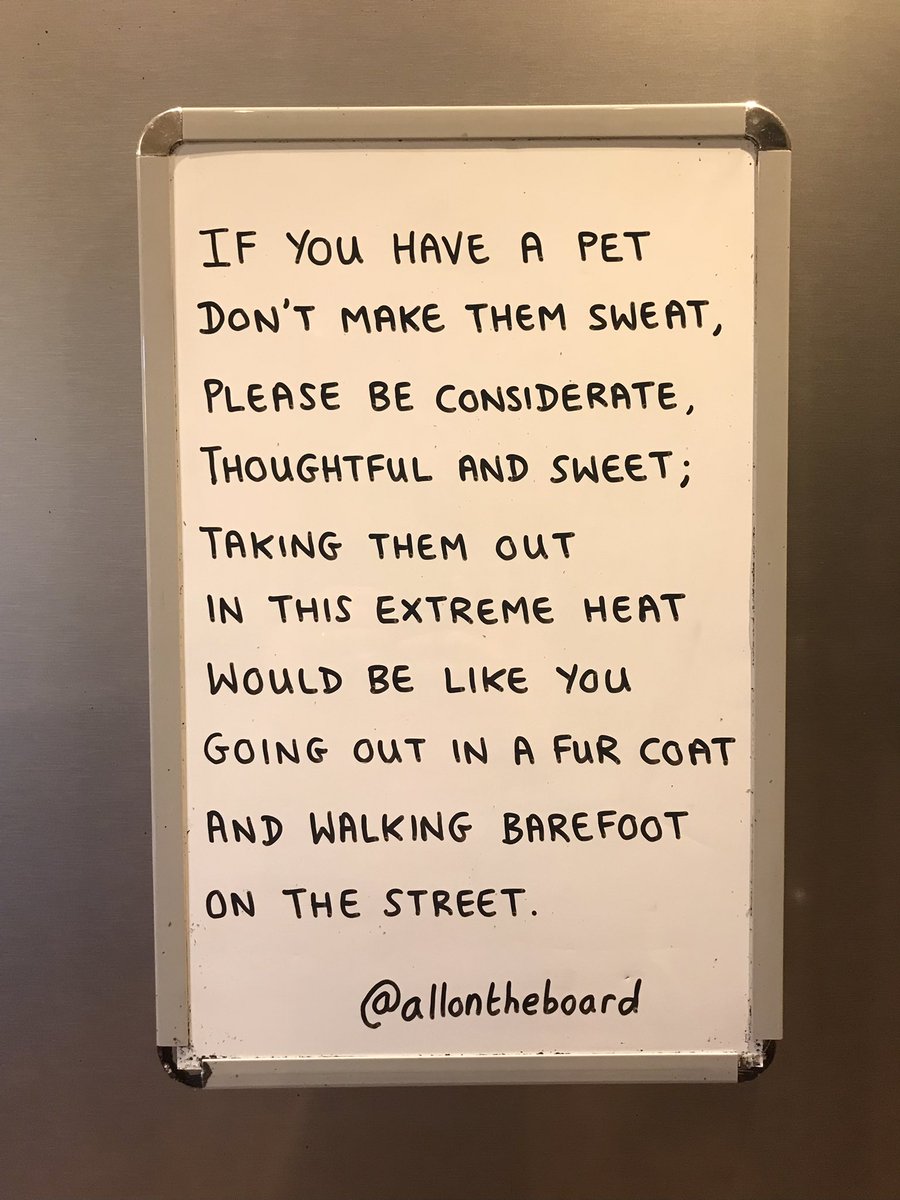 IF YOU HAVE A PET
DON'T MAKE THEM SWEAT,
PLEASE BE CONSIDERATE,
THOUGHTFUL AND SWEET;
TAKING THEM OUT
IN THIS EXTREME HEAT
WOULD BE LIKE YOU
GOING OUT IN A FUR COAT
AND WALKING BAREFOOT
ON THE STREET.
@allontheboard